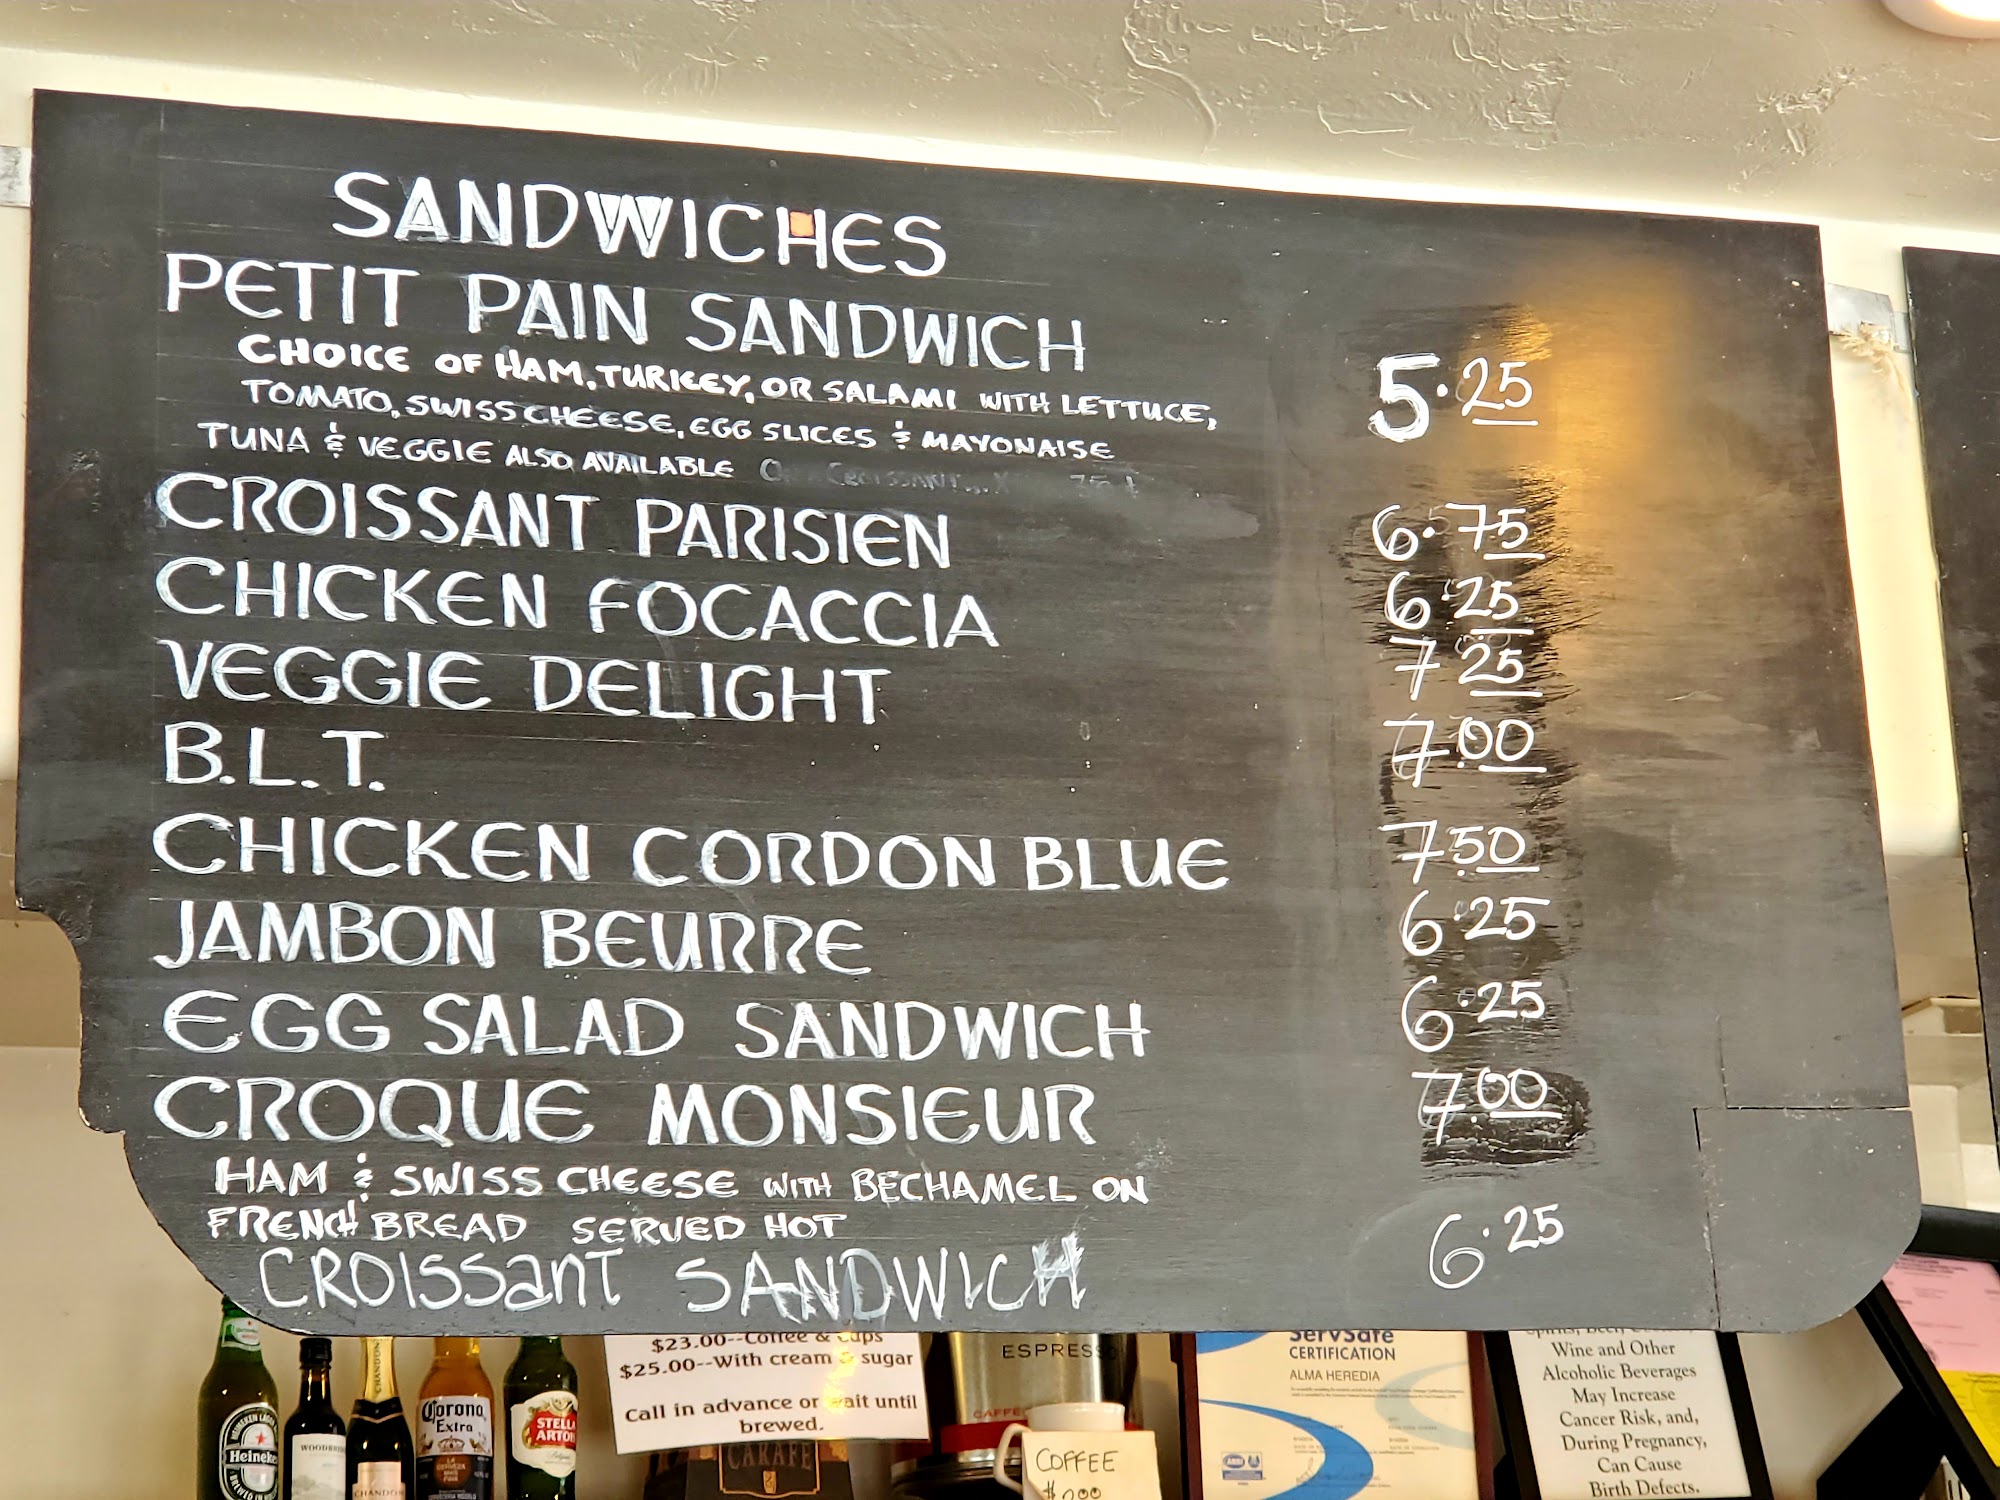 SANDWICHES
PETIT PAIN SANDWICH
CHOICE OF HAM, TURKEY, OR SALAMI WITH LETTUCE, 5.25
TOMATO, SWISS CHEESE, EGG SLICES & MAYONAISE
TUNA & VEGGIE ALSO AVAILABLE
CROISSANT PARISIEN 6.75
CHICKEN FOCACCIA 6.25
VEGGIE DELIGHT 7 25
B.L.T. 7.00
CHICKEN CORDON BLUE 7.50
JAMBON BEURRE 6.25
EGG SALAD SANDWICH 6.25
CROQUE MONSIEUR 7.00
HAM & SWISS CHEESE WITH BECHAMEL ON
FRENCH BREAD SERVED HOT
CROISSANT SANDWICH 6.25
$23.00--Coffee & Cups
$25.00--With cream & sugar
Call in advance or wait until
brewed.
CARAFE
ESPRESSO
COFFEE
ServSafe
CERTIFICATION
ALMA HEREDIA
Wine and Other
Alcoholic Beverages
May Increase
Cancer Risk, and,
During Pregnancy,
Can Cause
Birth Defects.
Heineken
CHANDON
CHANDON
Corona
Extra
STELLA
ARTOIS